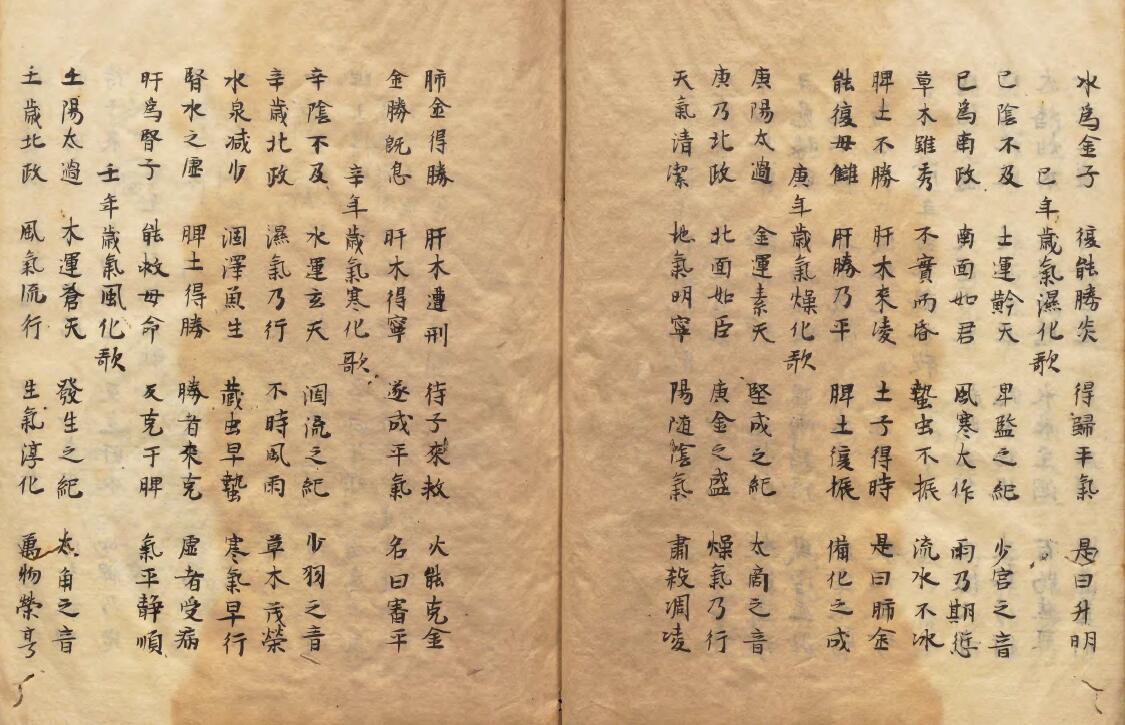 水為金子 復能勝炎 得歸平氣 是曰升明
已年歲氣濕化歌
已陰不及 土運黅天 卑監之紀 少宮之音
已為南政 南面如君 風寒大作 雨乃期愆
草木雖秀 不實而昏 蟄虫不振 流水不冰
脾土不勝 肝木來凌 土子得時 是曰肺金
能復母讎 肝勝乃平 脾土復振 備化之成
庚年歲氣燥化歌
庚陽太過 金運素天 堅成之紀 太商之音
庚乃北政 北面如臣 庚金之盛 燥氣乃行
天氣清潔 地氣明寧 陽随陰氣 肅殺凋凌
肺金得勝 肝木遭刑 待子來救 火能克金
金勝既息 肝木得寧 遂成平氣 名曰審平
辛年歲氣寒化歌
辛陰不及 水運玄天 涸流之紀 少羽之音
辛歲北政 濕氣乃行 不時風雨 草木茂榮
水泉减少 涸澤魚生 藏虫早蟄 寒氣早行
腎水之虛 脾土得勝 勝者來克 虛者受病
肝為腎子 能救母命 反克于脾 氣平静順
壬年歲氣風化歌
壬陽太過 木運蒼天 發生之紀 太角之音
壬歲北政 風氣流行 生氣淳化 萬物榮亨